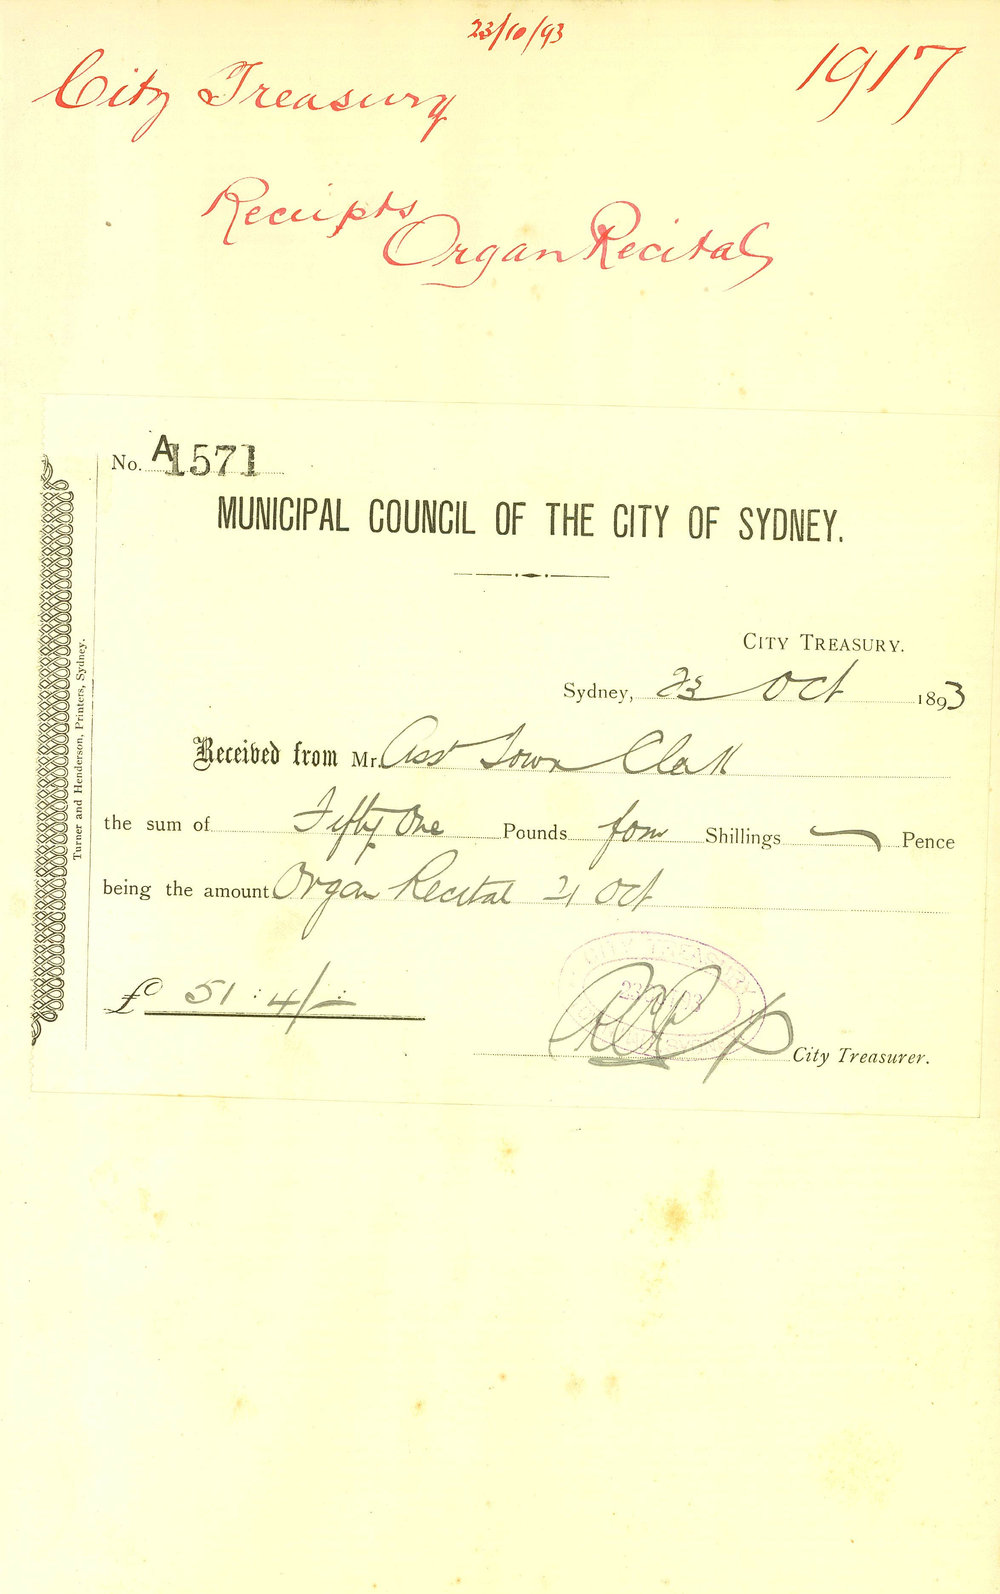 23/10/93
City Treasury
1917
Receipts
Organ Recital
No. A1571
MUNICIPAL COUNCIL OF THE CITY OF SYDNEY.
CITY TREASURY.
Sydney, 23 Oct 1893
Received from Mr. Asst Town Clerk
the sum of Fifty One Pounds four Shillings — Pence
being the amount Organ Recital 21 Oct
£ 51 : 4/-
CITY TREASURY
City Treasurer.
Turner and Henderson, Printers, Sydney.